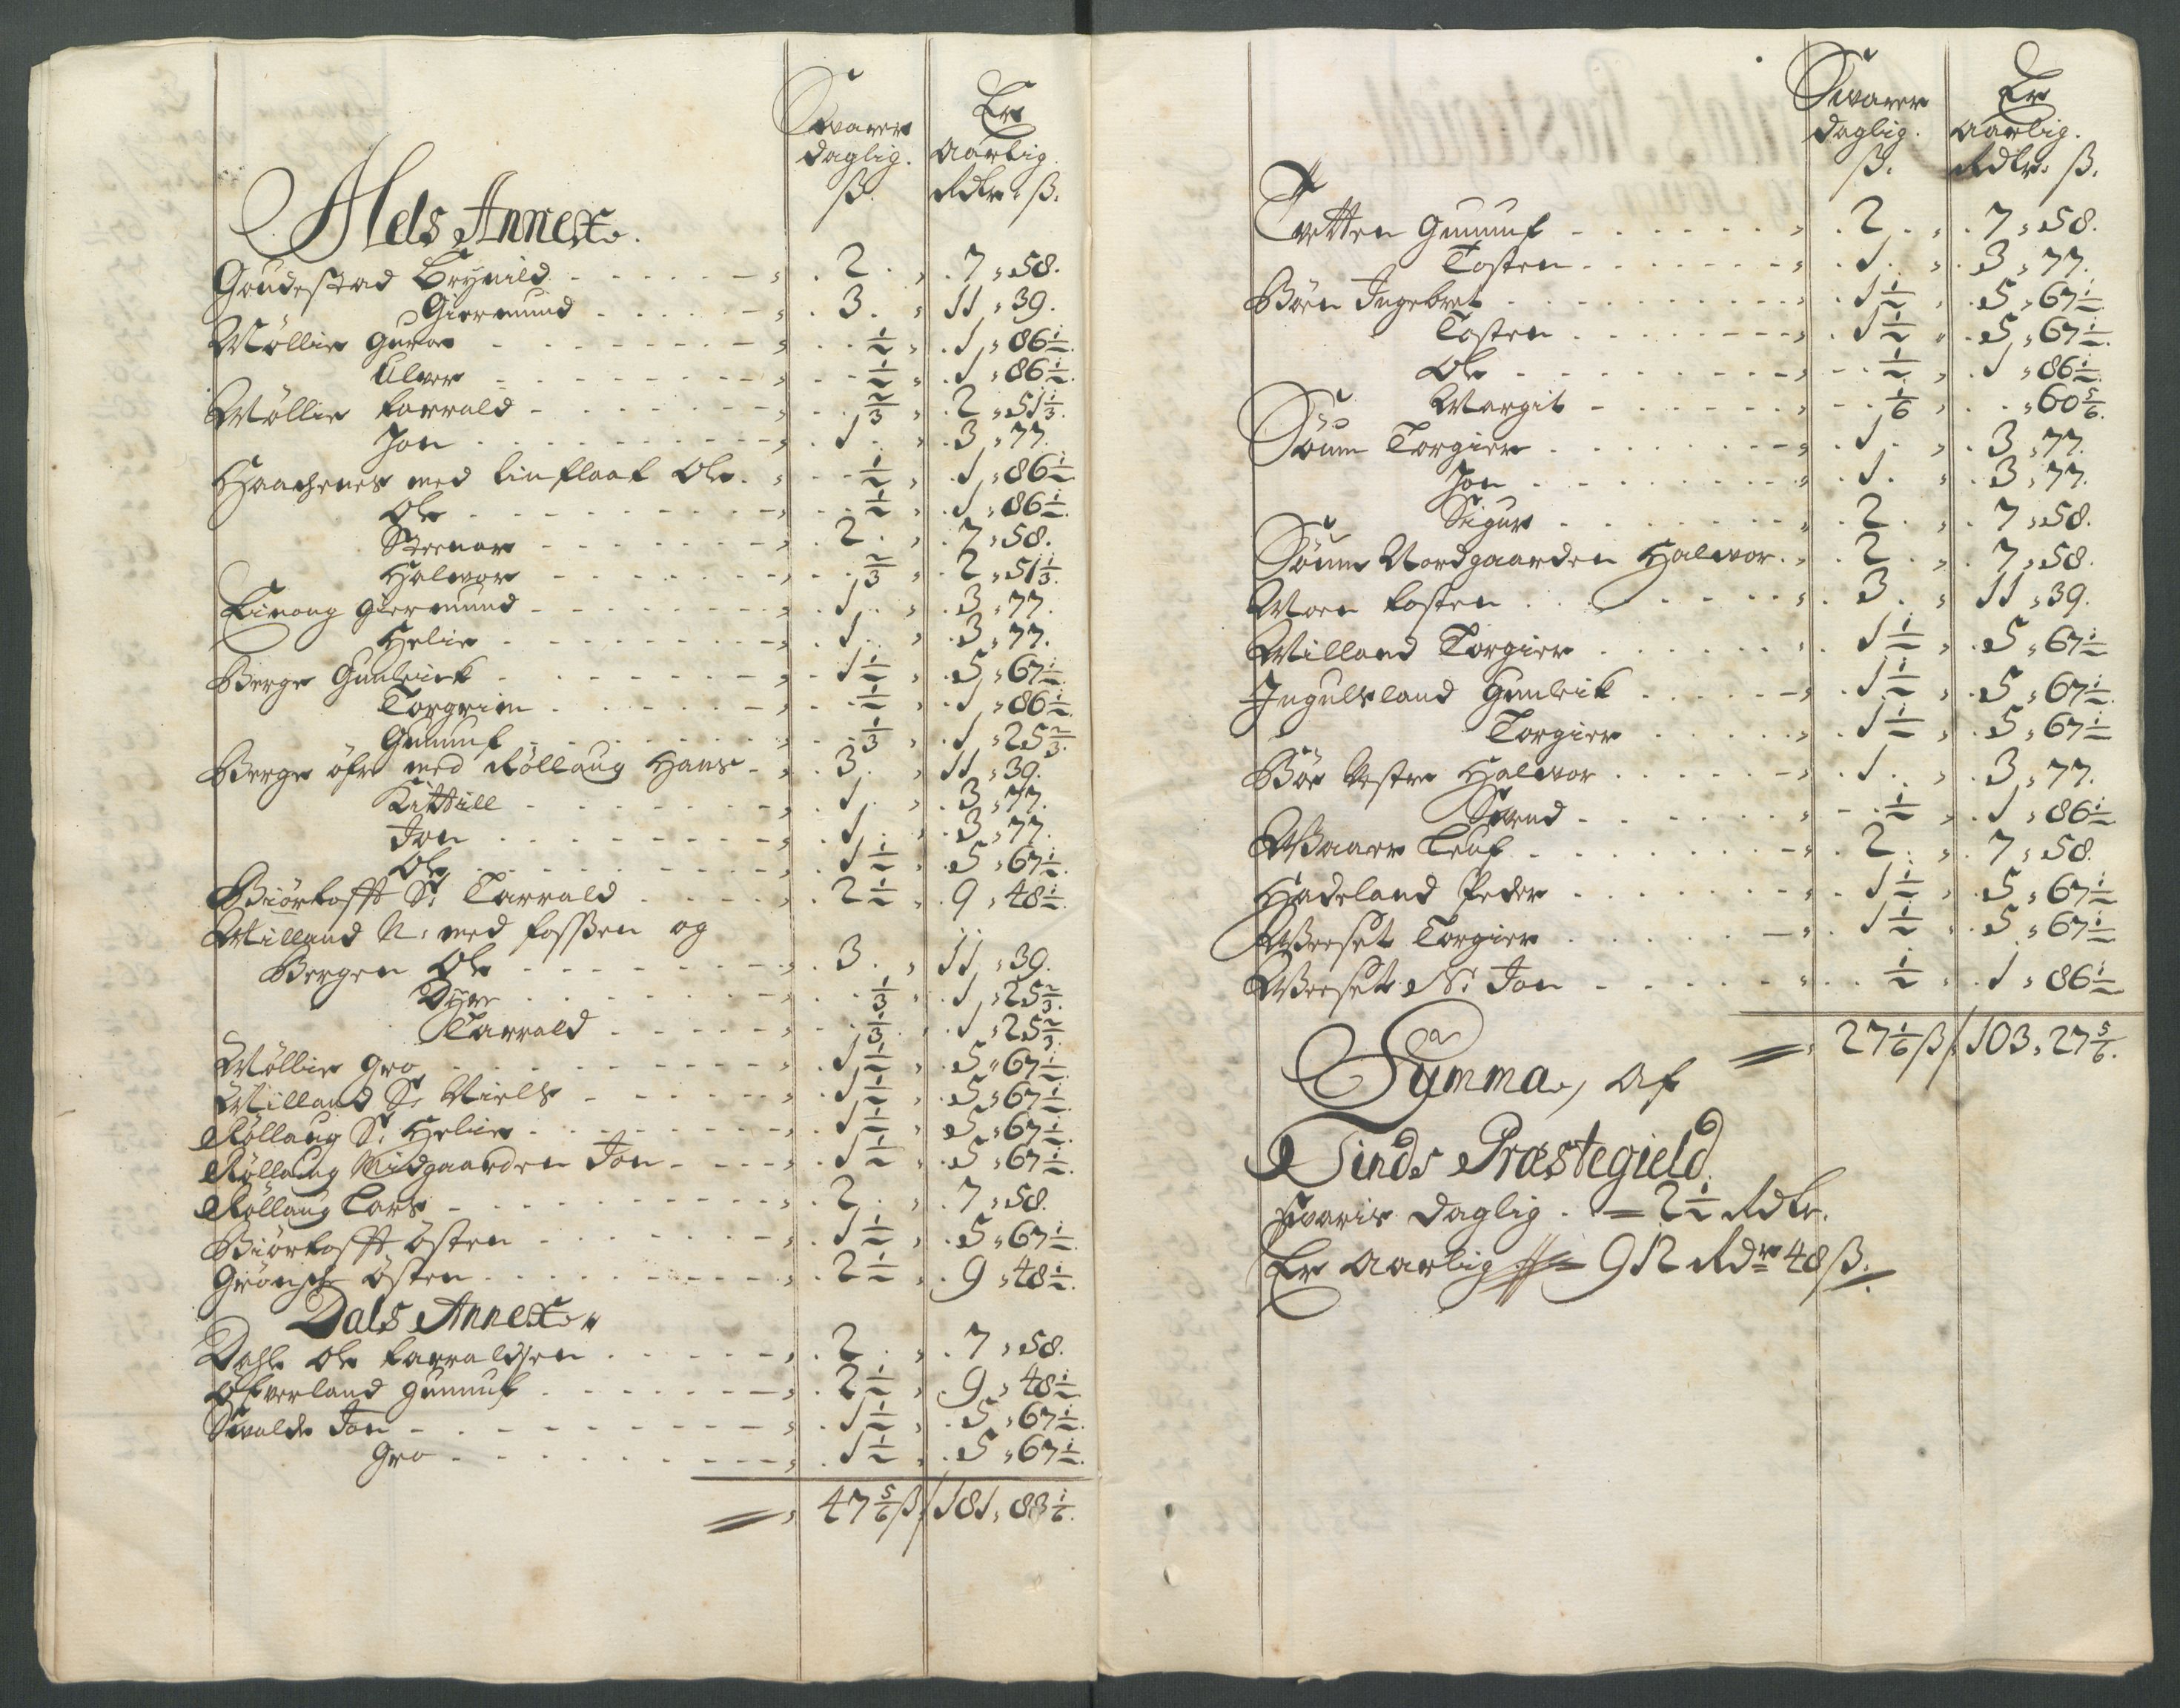 Swarer Er
daglig. Aarlig.
ß. Rdlr. ß.
Hels Annex.
Goudestad Brynild - - - 2. 7 , 58.
Giermund - - - 3. 11 , 39.
Møllie Guroe - - - ½ , 1 , 86½.
Ulver - - - ½ , 1 , 86½.
Møllie Tarrald - - - ⅔ , 2 , 51⅓.
Jon - - - 1. 3 , 77.
Haachenes med Ole. ½ , 1 , 86½
Ole - - - ½ , 1 , 86½.
Steenar - - - 2. 7 , 58.
Halvor - - - ⅔ , 2 , 51⅓.
Einong Giermund - - - 1. 3 , 77.
Helie - - - 1. 3 , 77.
Berge Gunleick - - - 1½ , 5 , 67½.
Torgrim - - - ½ , 1 , 86½.
Gunnuf - - - ⅓ , 1 , 25⅔.
Berge øfre med Rollaug Hans - 3. 11 , 39.
Kittill - - - 1. 3 , 77.
Jon - - - 1. 3 , 77.
Ole - - - 1½ , 5 , 67½.
Biørtofft S: Tarrald - - - 2½ , 9 , 48½.
Milland N: med fossen og
Bergen Ole - - - 3. 11 , 39.
Dyre - - - ⅓ , 1 , 25⅔.
Tarrald - - - ⅓ , 1 , 25⅔.
Møllie Gro - - - 1½ , 5 , 67½.
Milland S: Niels - - - 1½ , 5 , 67½.
Rollaug S: Helie - - - 1½ , 5 , 67½.
Rollaug Midgaarden Jon - - - 1½ , 5 , 67½.
Rollaug Lars - - - 2. 7 , 58.
Biørtofft Østen - - - 1½ , 5 , 67½.
Østen - - - 2½ , 9 , 48½.
Dals Annex
Dahle Ole Tarraldsen - - - 2. 7 , 58.
Øfverland Gunnuf - - - 2½ , 9 , 48½.
Svalde Jon - - - 1½ , 5 , 67½.
Gro - - - 1½ , 5 , 67½.
47⅚ ß / 181 , 88⅙.
Swarer Er
daglig. Aarlig.
ß. Rdlr. ß.
Tvetten Gunnuf - - - 2. 7 , 58.
Tosten - - - 1. 3 , 77.
Børn Ingebret - - - 1½ , 5 , 67½
Tosten - - - 1½ , 5 , 67½.
Ole - - - ½ , 1 , 86½.
Margit - - - ⅙ , 60⅚.
Søum Torgier - - - 1. 3 , 77.
Jon - - - 1. 3 , 77.
Sigur - - - 2. 7 , 58.
Søum Nordgaarden Halvor. 2. 7 , 58.
Moen Tosten - - - 3. 11 , 39.
Milland Torgier - - - 1½ , 5 , 67½
Ingulsland Gunleik - - - 1½ , 5 , 67½
Torgier - - - 1½ , 5 , 67½
Bøe Vestre Halvor - - - 1. 3 , 77.
Svend - - - ½ , 1 , 86½
Waaer Leuf - - - 2. 7 , 58.
Hadeland Peder - - - 1½ , 5 , 67½
Weeset Torgier - - - 1½ , 5 , 67½
Weeset N: Jon - - - ½ , 1 , 86½
27⅙ ß / 103 , 27⅚.
Summa, af
Tinds Præstegield
svarir daglig. = 2½ Rdlr.
Er Aarlig = 912 Rdr 48 ß.